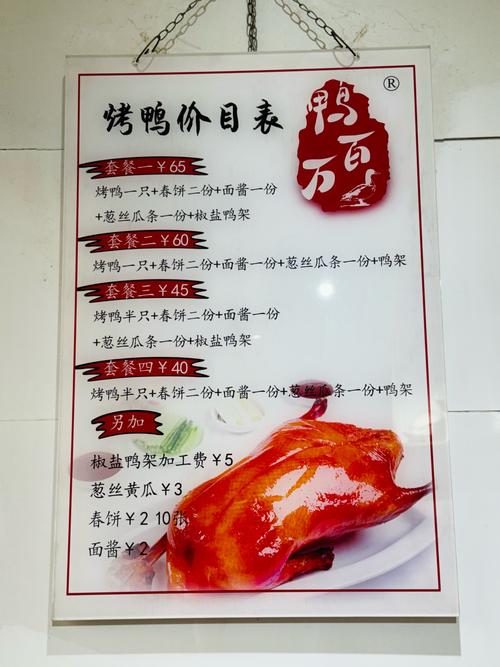 烤鸭价目表
鸭百万
®
套餐一￥65
烤鸭一只+春饼二份+面酱一份
+葱丝瓜条一份+椒盐鸭架
套餐二￥60
烤鸭一只+春饼二份+面酱一份+葱丝瓜条一份+鸭架
套餐三￥45
烤鸭半只+春饼二份+面酱一份
+葱丝瓜条一份+椒盐鸭架
套餐四￥40
烤鸭半只+春饼二份+面酱一份+葱丝瓜条一份+鸭架
另加
椒盐鸭架加工费￥5
葱丝黄瓜￥3
春饼￥2 10张
面酱￥2